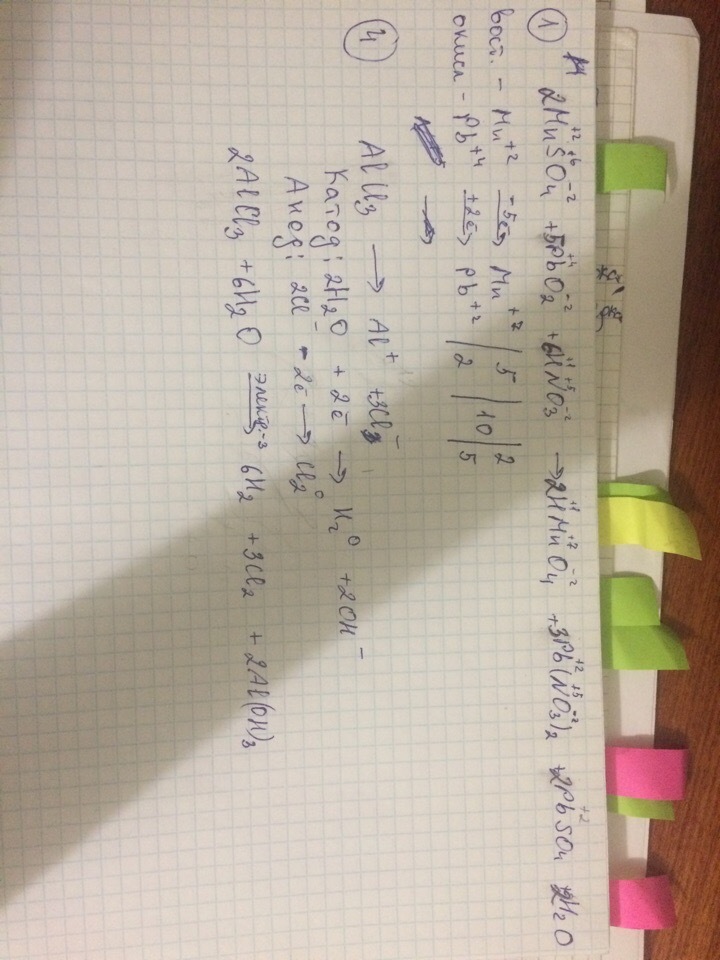 ① 2Mn⁺²S⁺⁶O₄⁻² + 5Pb⁺⁴O₂⁻² + 6H⁺¹N⁺⁵O₃⁻² → 2H⁺¹Mn⁺⁷O₄⁻² + 3Pb⁺²(N⁺⁵O₃⁻²)₂ + 2Pb⁺²SO₄ 2H₂O
вост. – Mn⁺² –5e→ Mn⁺⁷ | 5 | 10 | 2
окисл – Pb⁺⁴ +2e→ Pb⁺² | 2 | | 5
④ AlCl₃ → Al⁺ + 3Cl⁻
Катод: 2H₂O + 2e → H₂⁰ + 2OH⁻
Анод: 2Cl⁻ - 2e → Cl₂⁰
2AlCl₃ + 6H₂O электр-з→ 6H₂ + 3Cl₂ + 2Al(OH)₃